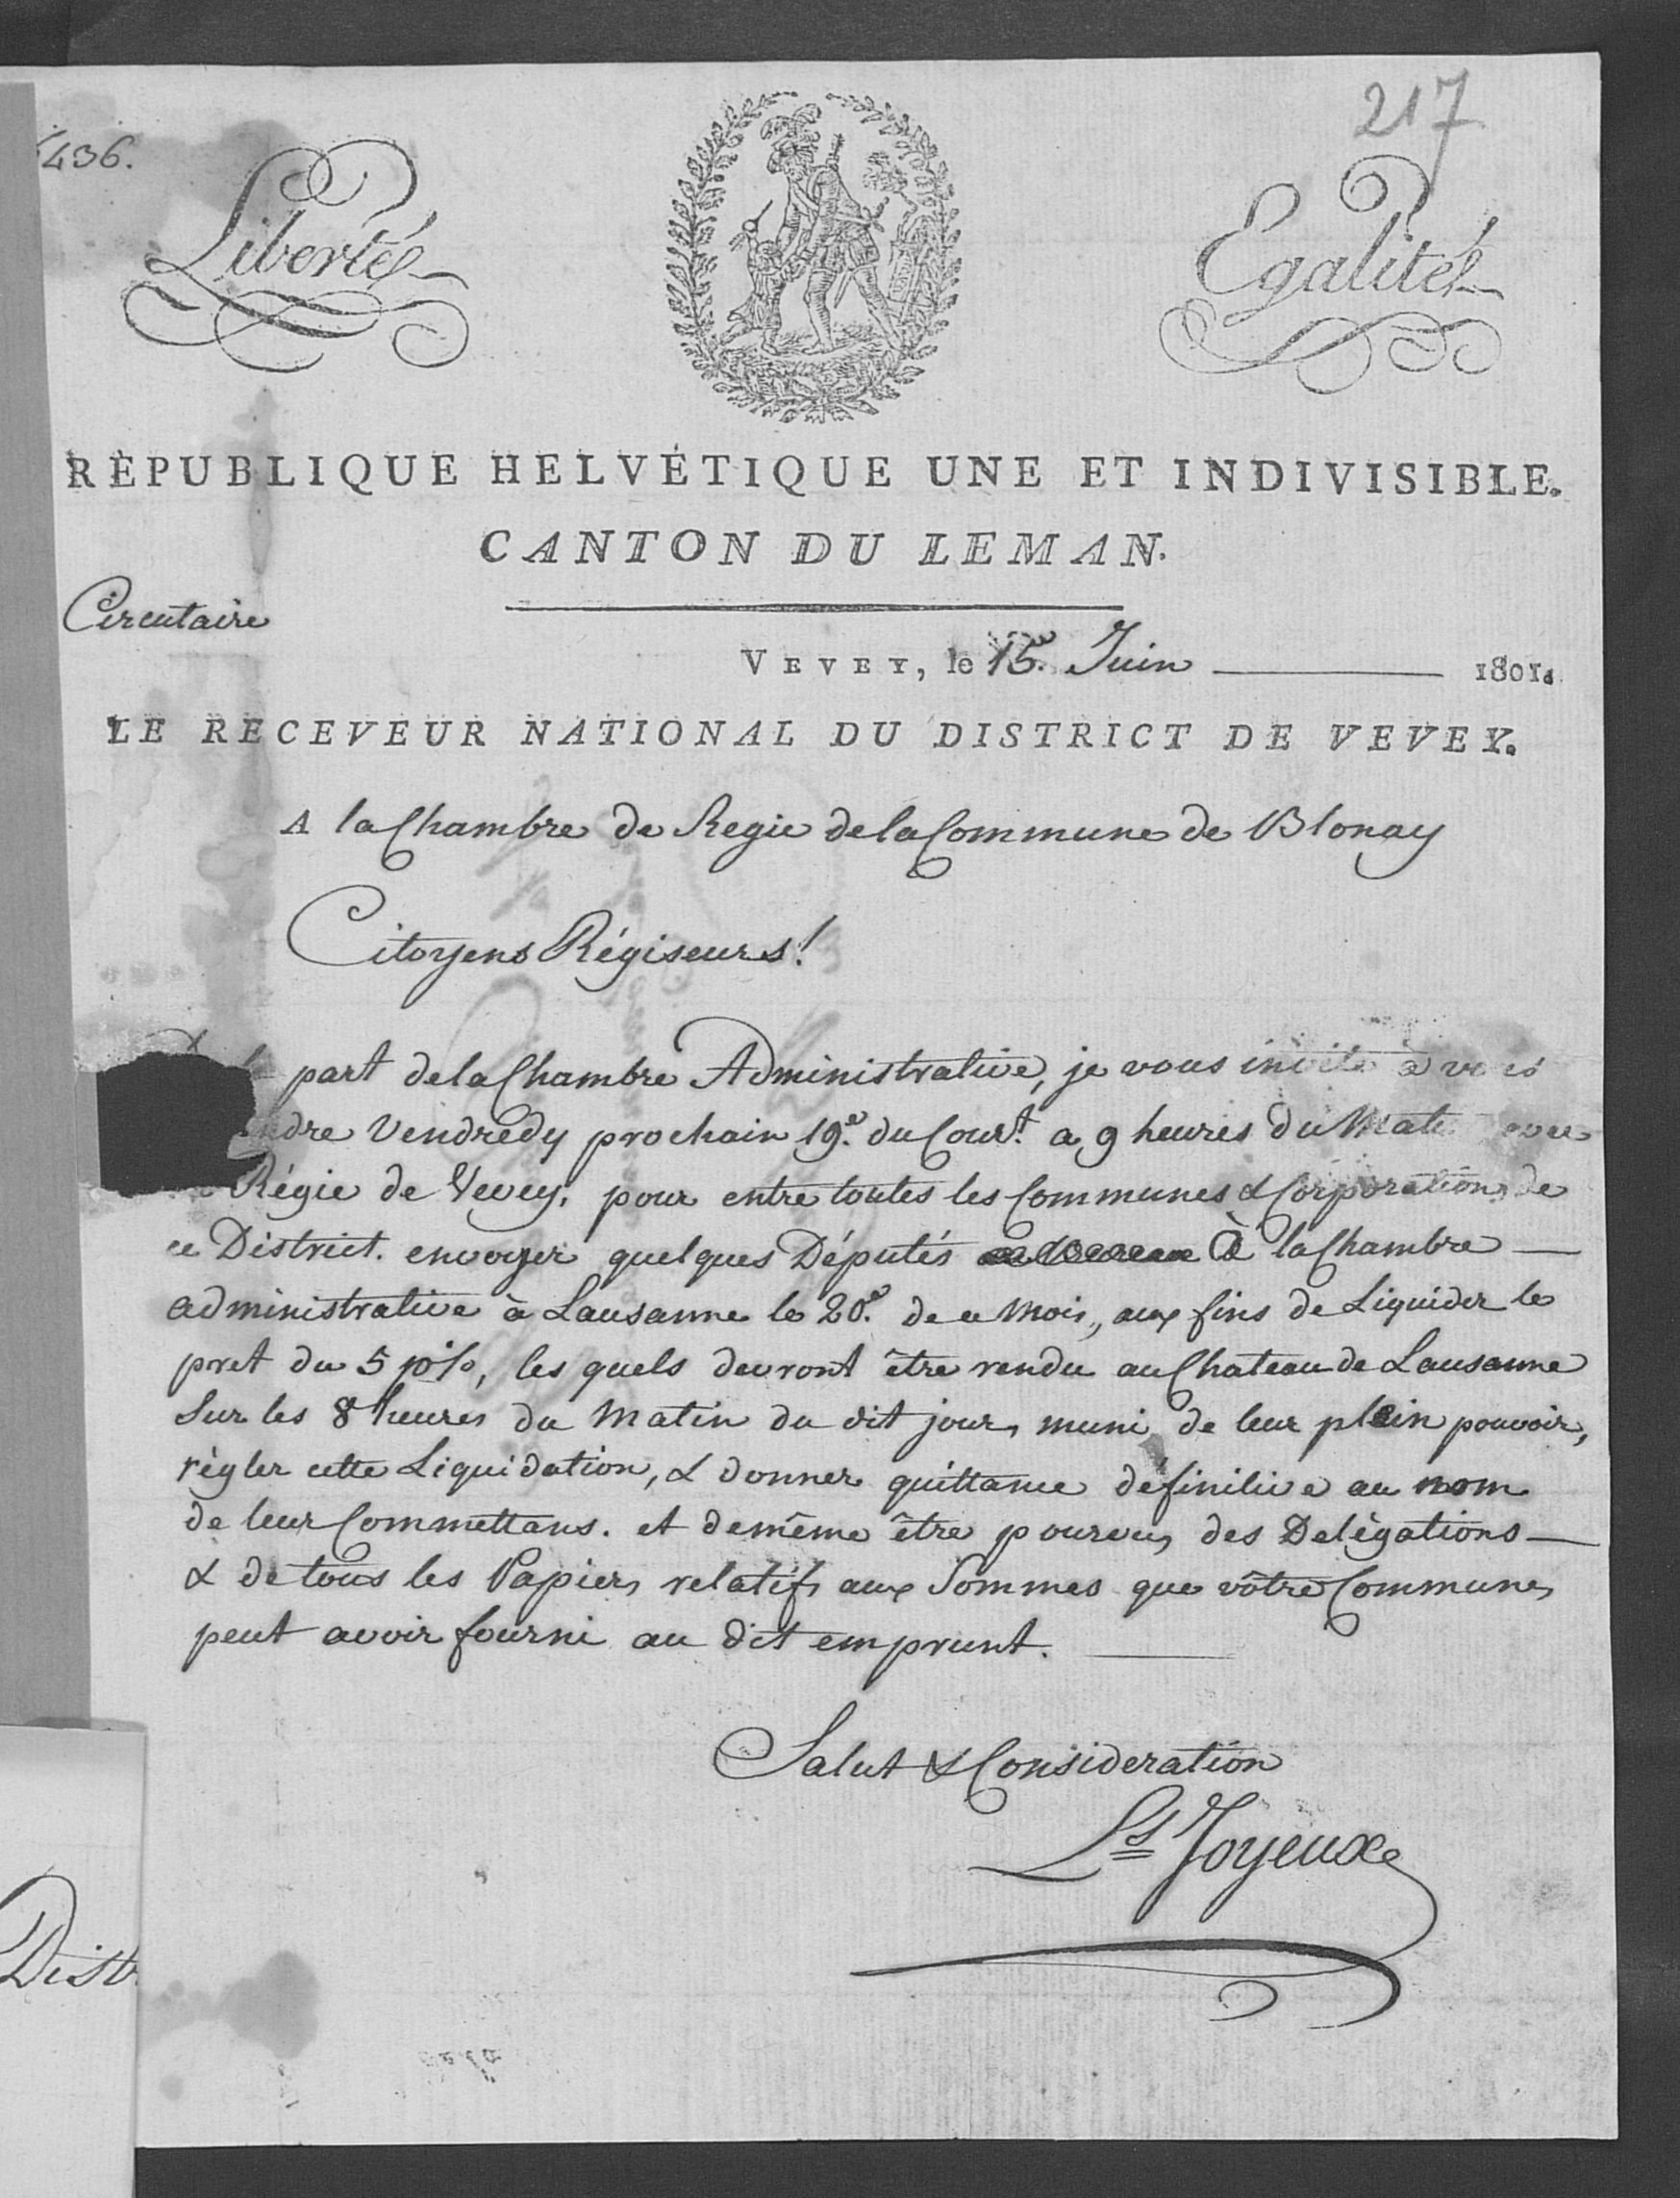 217
1436.
Liberté
Egalité
RÉPUBLIQUE HELVÉTIQUE UNE ET INDIVISIBLE.
CANTON DU LEMAN.
Circulaire
VEVEY, le 15.e Juin 1801.
LE RECEVEUR NATIONAL DU DISTRICT DE VEVEY.
A la Chambre de Regie de la Commune de Blonay
Citoyens Régiseurs!
part de la Chambre Administrative, je vous invite à vous
Vendredy prochain 19.e du Cour.t a 9 heures du
Régie de Vevey, pour entre toutes les Communes & Corporations de
ce District. envoyer quelques Députés à la Chambre
administrative à Lausanne le 20.e de ce Mois, aux fins de Liquider le
pret du 5 p%, les quels devront être rendu au Chateau de Lausanne
Sur les 8 heures du Matin du dit jour, muni de leur plein pouvoir,
règler cette Liquidation, & donner quittance définitive au nom
de leur Commettans. et de même être pourvus des Delègations
& de tous les Papiers relatifs aux Sommes que vôtre Commune
peut avoir fourni au dit emprunt.
Salut & Consideration
Ls Joyeux
Dist